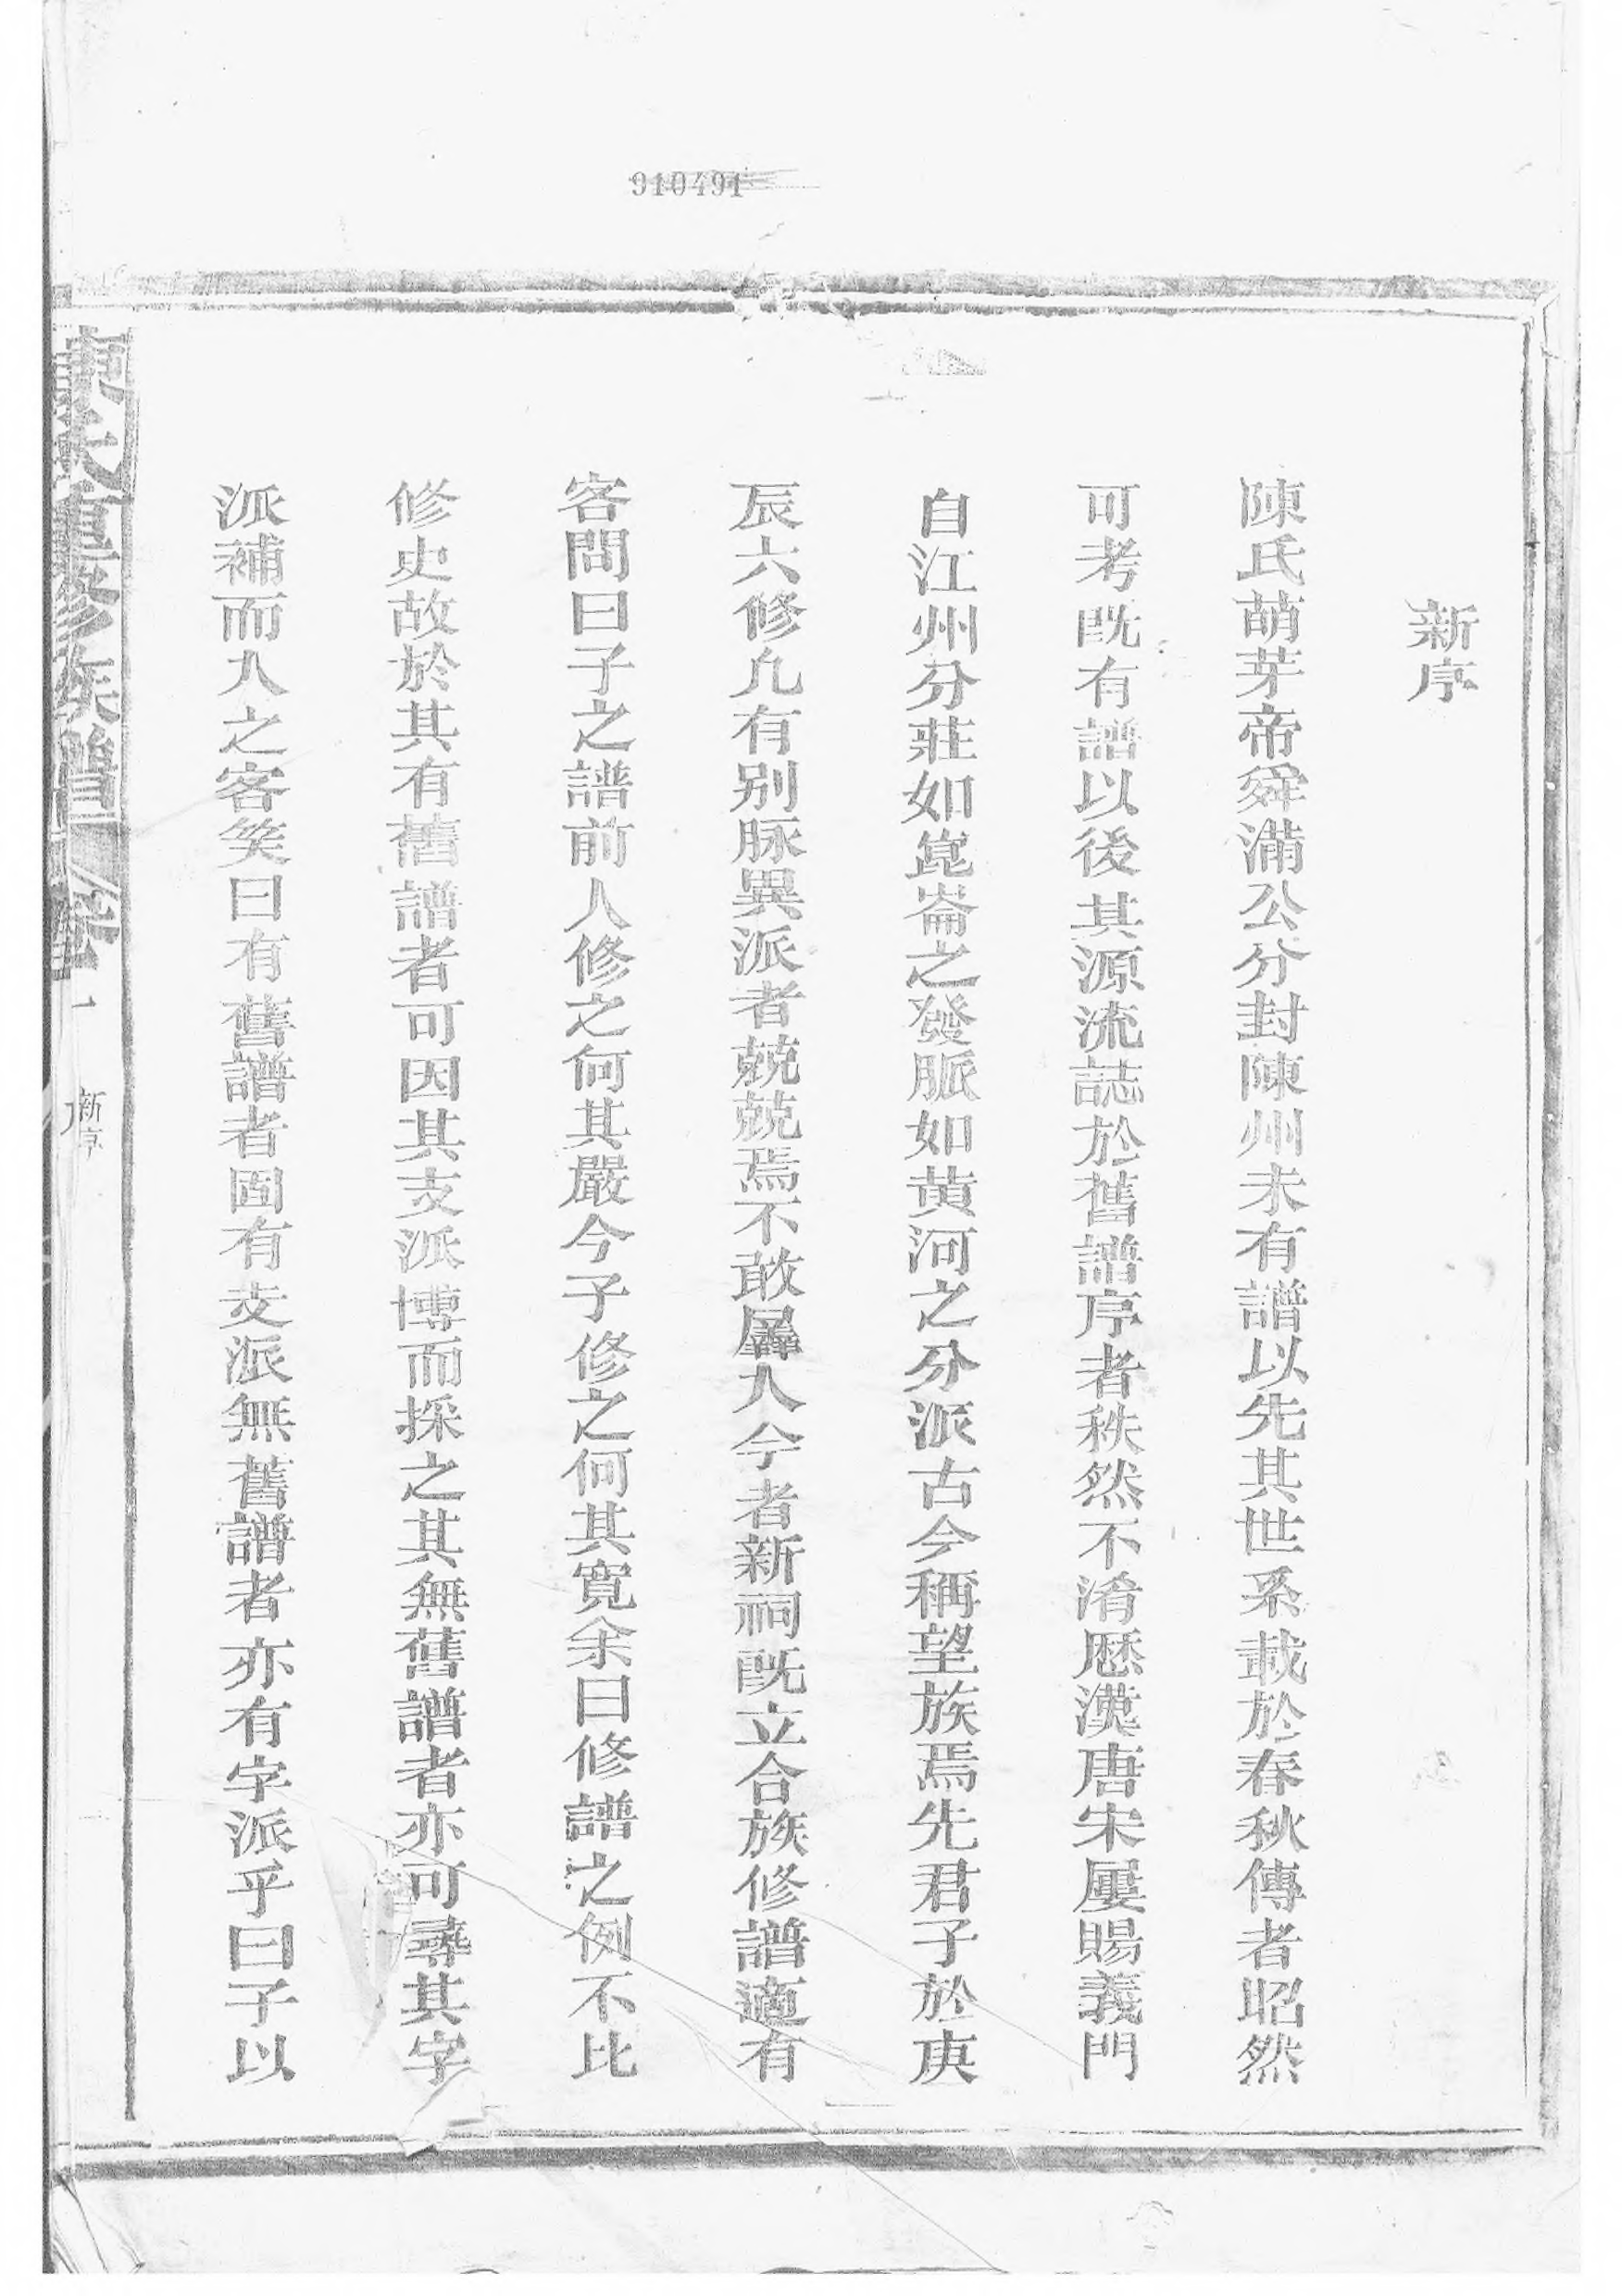 910491
新序
陳氏萌芽帝舜滿公分封陳州未有譜以先其世系載於春秋傳者昭然
可考既有譜以後其源流誌於舊譜序者秩然不淆歴漢唐宋屢賜義門
自江州分莊如崑崙之發脈如黃河之分派古今稱望族焉先君子於庚
辰六修凡有别脉異派者兢兢焉不敢羼入今者新祠既立合族修譜適有
客問曰子之譜前人修之何其嚴今子修之何其寬余曰修譜之例不比
修史故於其有舊譜者可因其支派博而採之其無舊譜者亦可尋其字
派補而入之客笑曰有舊譜者固有支派無舊譜者亦有字派乎曰子以
陳氏重修族譜 卷一 新序